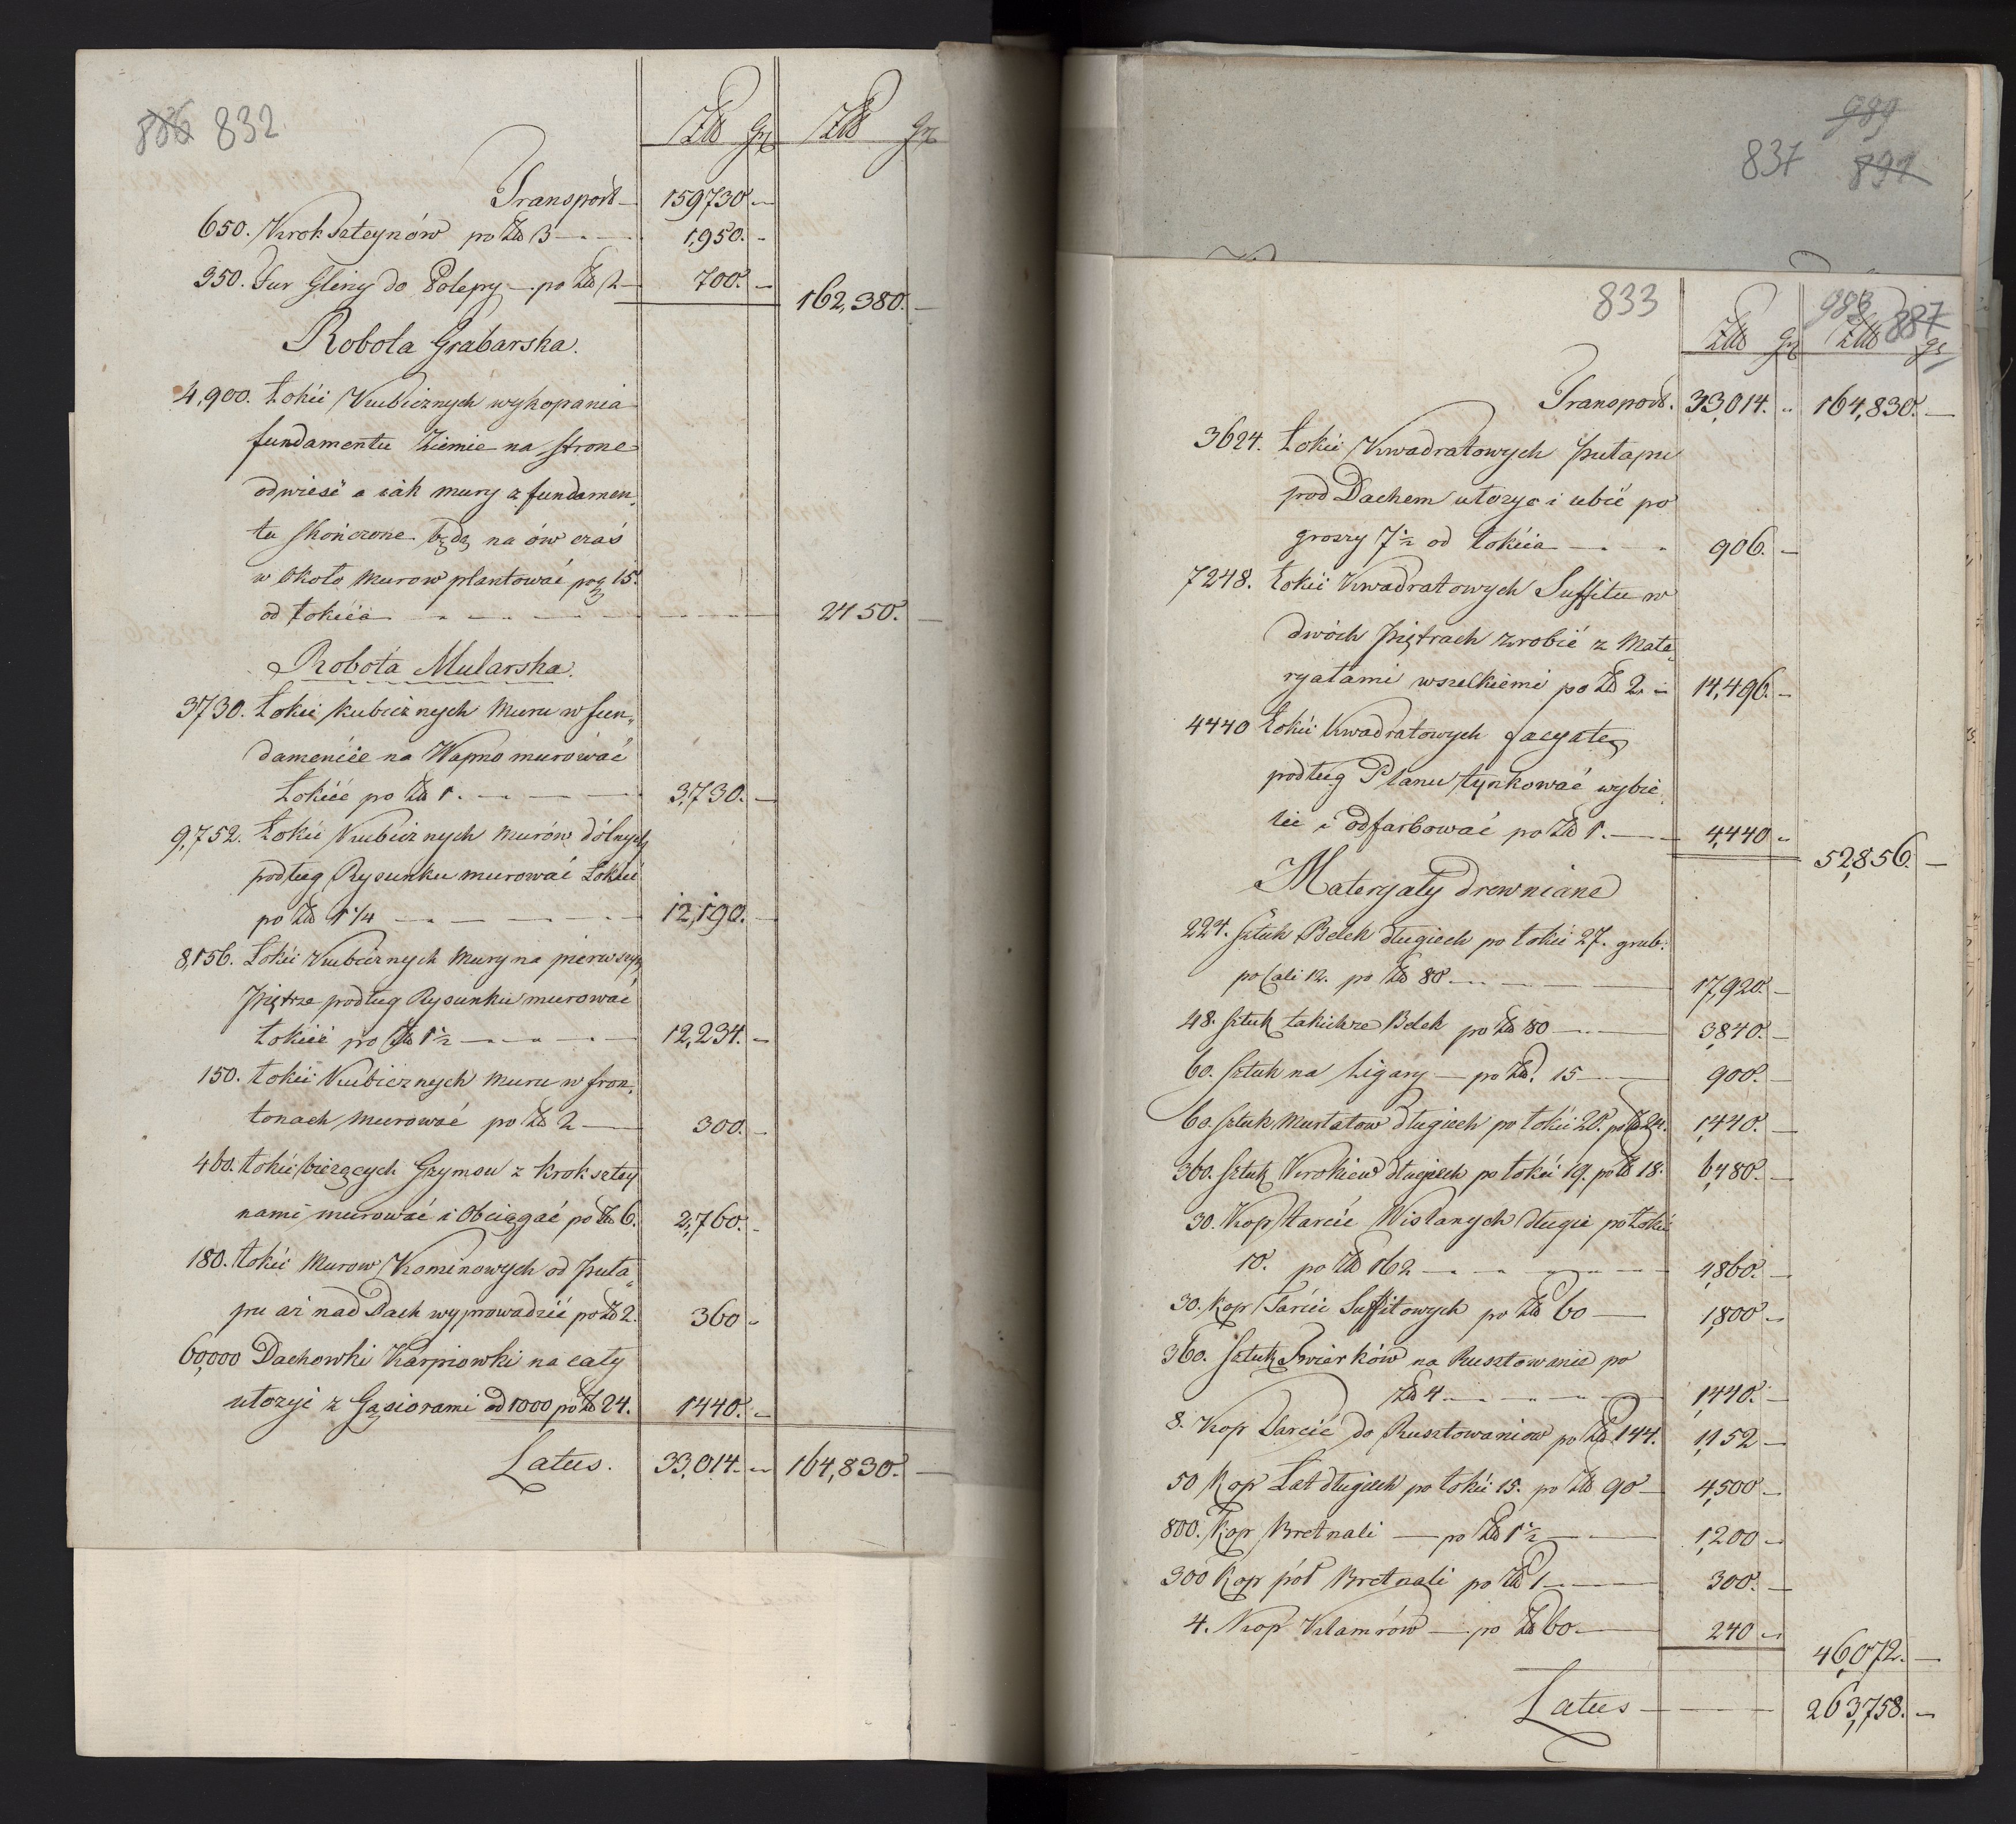 886 832
Złł Gr Złł Gr
Transport — 159730 —
650. Krokszteynów po Złł 3 — 1,950. —
350. Fur Gliny do Polepy — po Złł 2 — 700. — 162,380. —
Robota Grabarska.
4,900. Łokci Kubicznych wykopania
fundamentu Ziemie na strone
odwieść a iák mury z fundamen„
tu skończone będą na ów czas
w około murow plantować po g 15.
od Łokcia — 2450. —
Robota Mularska.
3730. Łokci kubicznych Muru w fun„
damencie na Wapno murować
Łokieć po Złł 1. — 3,730. —
9,752. Łokci Kubicznych murów dólnych
podług Rysunku murować Łokieć
po Złł 1 1/4 — 12,190. —
8,156. Łokci Kubicznych Mury na pierwszym
Piętrze podług Rysunku murować
Łokieć po Złł 1 1/2 — 12,234. —
150. Łokci Kubicznych Muru w fron„
tonach murować po Złł 2 — 300. —
460. Łokci bieżących Gzymsu z kroksztey
nami murować i Obciągać po Złł 6. 2,760. —
180. Łokci Murow Kominowych od puła„
pu aż nad Dach wyprowadzić po Złł 2. 360 —
60,000 Dachowki Karpiowki na cały
ułozyć z Gąsiorami od 1000 po Złł 24. 1440. —
Latus. 33,014. — 164,830. —
989
837 891
833 983 887
Złł Gr Złł gr
Transport. 33,014. „ 164,830. —
3624. Łokci Kwadratowych pułapu
pod Dachem ułozyć i ubić po
groszy 7 1/2 od Łokcia — 906. —
7248. Łokci Kwadratowych Suffitu w
dwóch piętrach zrobić z Mate„
ryałami wszelkiemi po Złł 2. — 14,496. —
4440 Łokci Kwadratowych facyatę
podług Planu tynkować wybie„
lić i odfarbować po Złł 1. — 4,440 —
52,856. —
Materyały drewniane
224. sztuk Belek długich po łokci 27. grub.
po Cali 12. po Złł 80 — 17,920. —
48. sztuk takichże Belek po Złł 80 — 3,840. —
60. sztuk na Ligary — po Złł. 15 — 900. —
60. sztuk murłatow długich po łokci 20. po Złł 24. 1,440. —
360. sztuk Krokiew długich po łokci 19. po Złł 18. 6,480. —
30. Kop tarcic Wislanych długie po Łokci
10. po Złł 162 — 4,860. —
30. Kop Tarcic Suffitowych po Złł 60 — 1,800 —
360. Sztuk Swierków na Rusztowanie po
Złł 4. — 1,440. —
8. Kop Tarcic do Rusztowaniow po Złł 144. 1,152 —
50 Kop Łat długich po łokci 15. po Złł 90 — 4,500 —
800. Kop Bretnali — po Złł 1 1/2 — 1,200 —
300 Kop pół Bretnali po Złł 1 — 300. —
4. Kop Klamrów — po Złł 60. — 240 —
46,072. —
Latus — 263,758. —